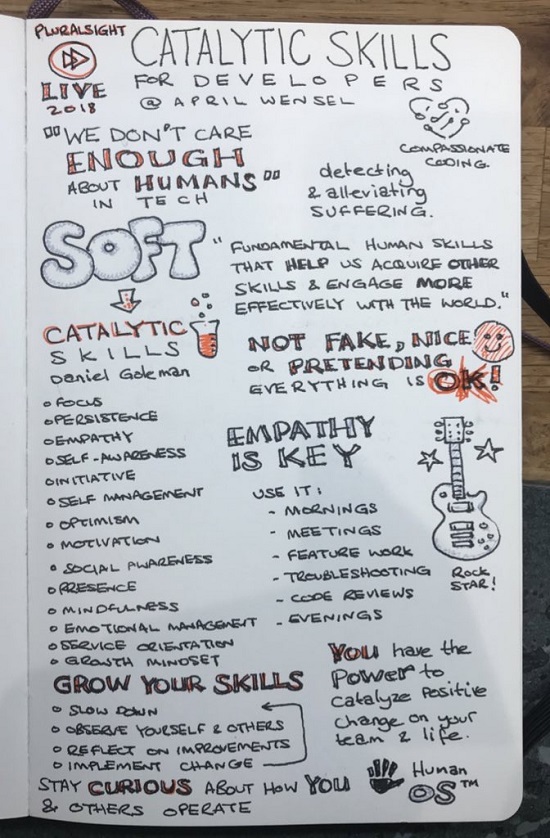 PLURALSIGHT
LIVE
2018
CATALYTIC SKILLS
FOR DEVELOPERS
@ APRIL WENSEL
COMPASSIONATE
CODING.
"WE DON'T CARE
ENOUGH
ABOUT HUMANS"
IN TECH
detecting
& alleviating
SUFFERING.
SOFT
CATALYTIC
SKILLS
Daniel Goleman
"FUNDAMENTAL HUMAN SKILLS
THAT HELP US ACQUIRE OTHER
SKILLS & ENGAGE MORE
EFFECTIVELY WITH THE WORLD."
NOT FAKE, NICE
OR PRETENDING
EVERYTHING IS OK!
o FOCUS
o PERSISTENCE
o EMPATHY
o SELF-AWARENESS
o INITIATIVE
o SELF MANAGEMENT
o OPTIMISM
o MOTIVATION
o SOCIAL AWARENESS
o PRESENCE
o MINDFULNESS
o EMOTIONAL MANAGEMENT
o SERVICE ORIENTATION
o GROWTH MINDSET
EMPATHY
IS KEY
USE IT:
- MORNINGS
- MEETINGS
- FEATURE WORK
- TROUBLESHOOTING
- CODE REVIEWS
- EVENINGS
Rock
STAR!
GROW YOUR SKILLS
o SLOW DOWN
o OBSERVE YOURSELF & OTHERS
o REFLECT ON IMPROVEMENTS
o IMPLEMENT CHANGE
YOU have the
Power to
catalyze Positive
change on your
team & life.
STAY CURIOUS ABOUT HOW YOU
& OTHERS OPERATE
Human
OS™